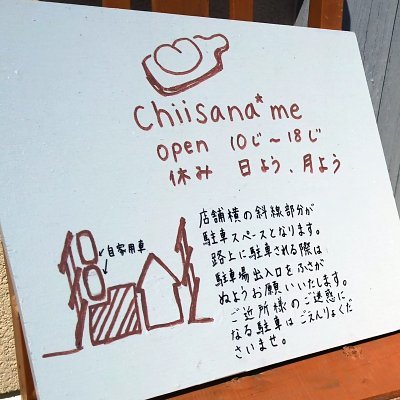 chiisana*me
open 10じ～18じ
休み 日よう、月よう
自家用車
店舗横の斜線部分が
駐車スペースとなります。
路上に駐車される際は
駐車場出入口をふさが
ぬようお願いいたします。
ご近所様のご迷惑に
なる駐車はごえんりょくだ
さいませ。